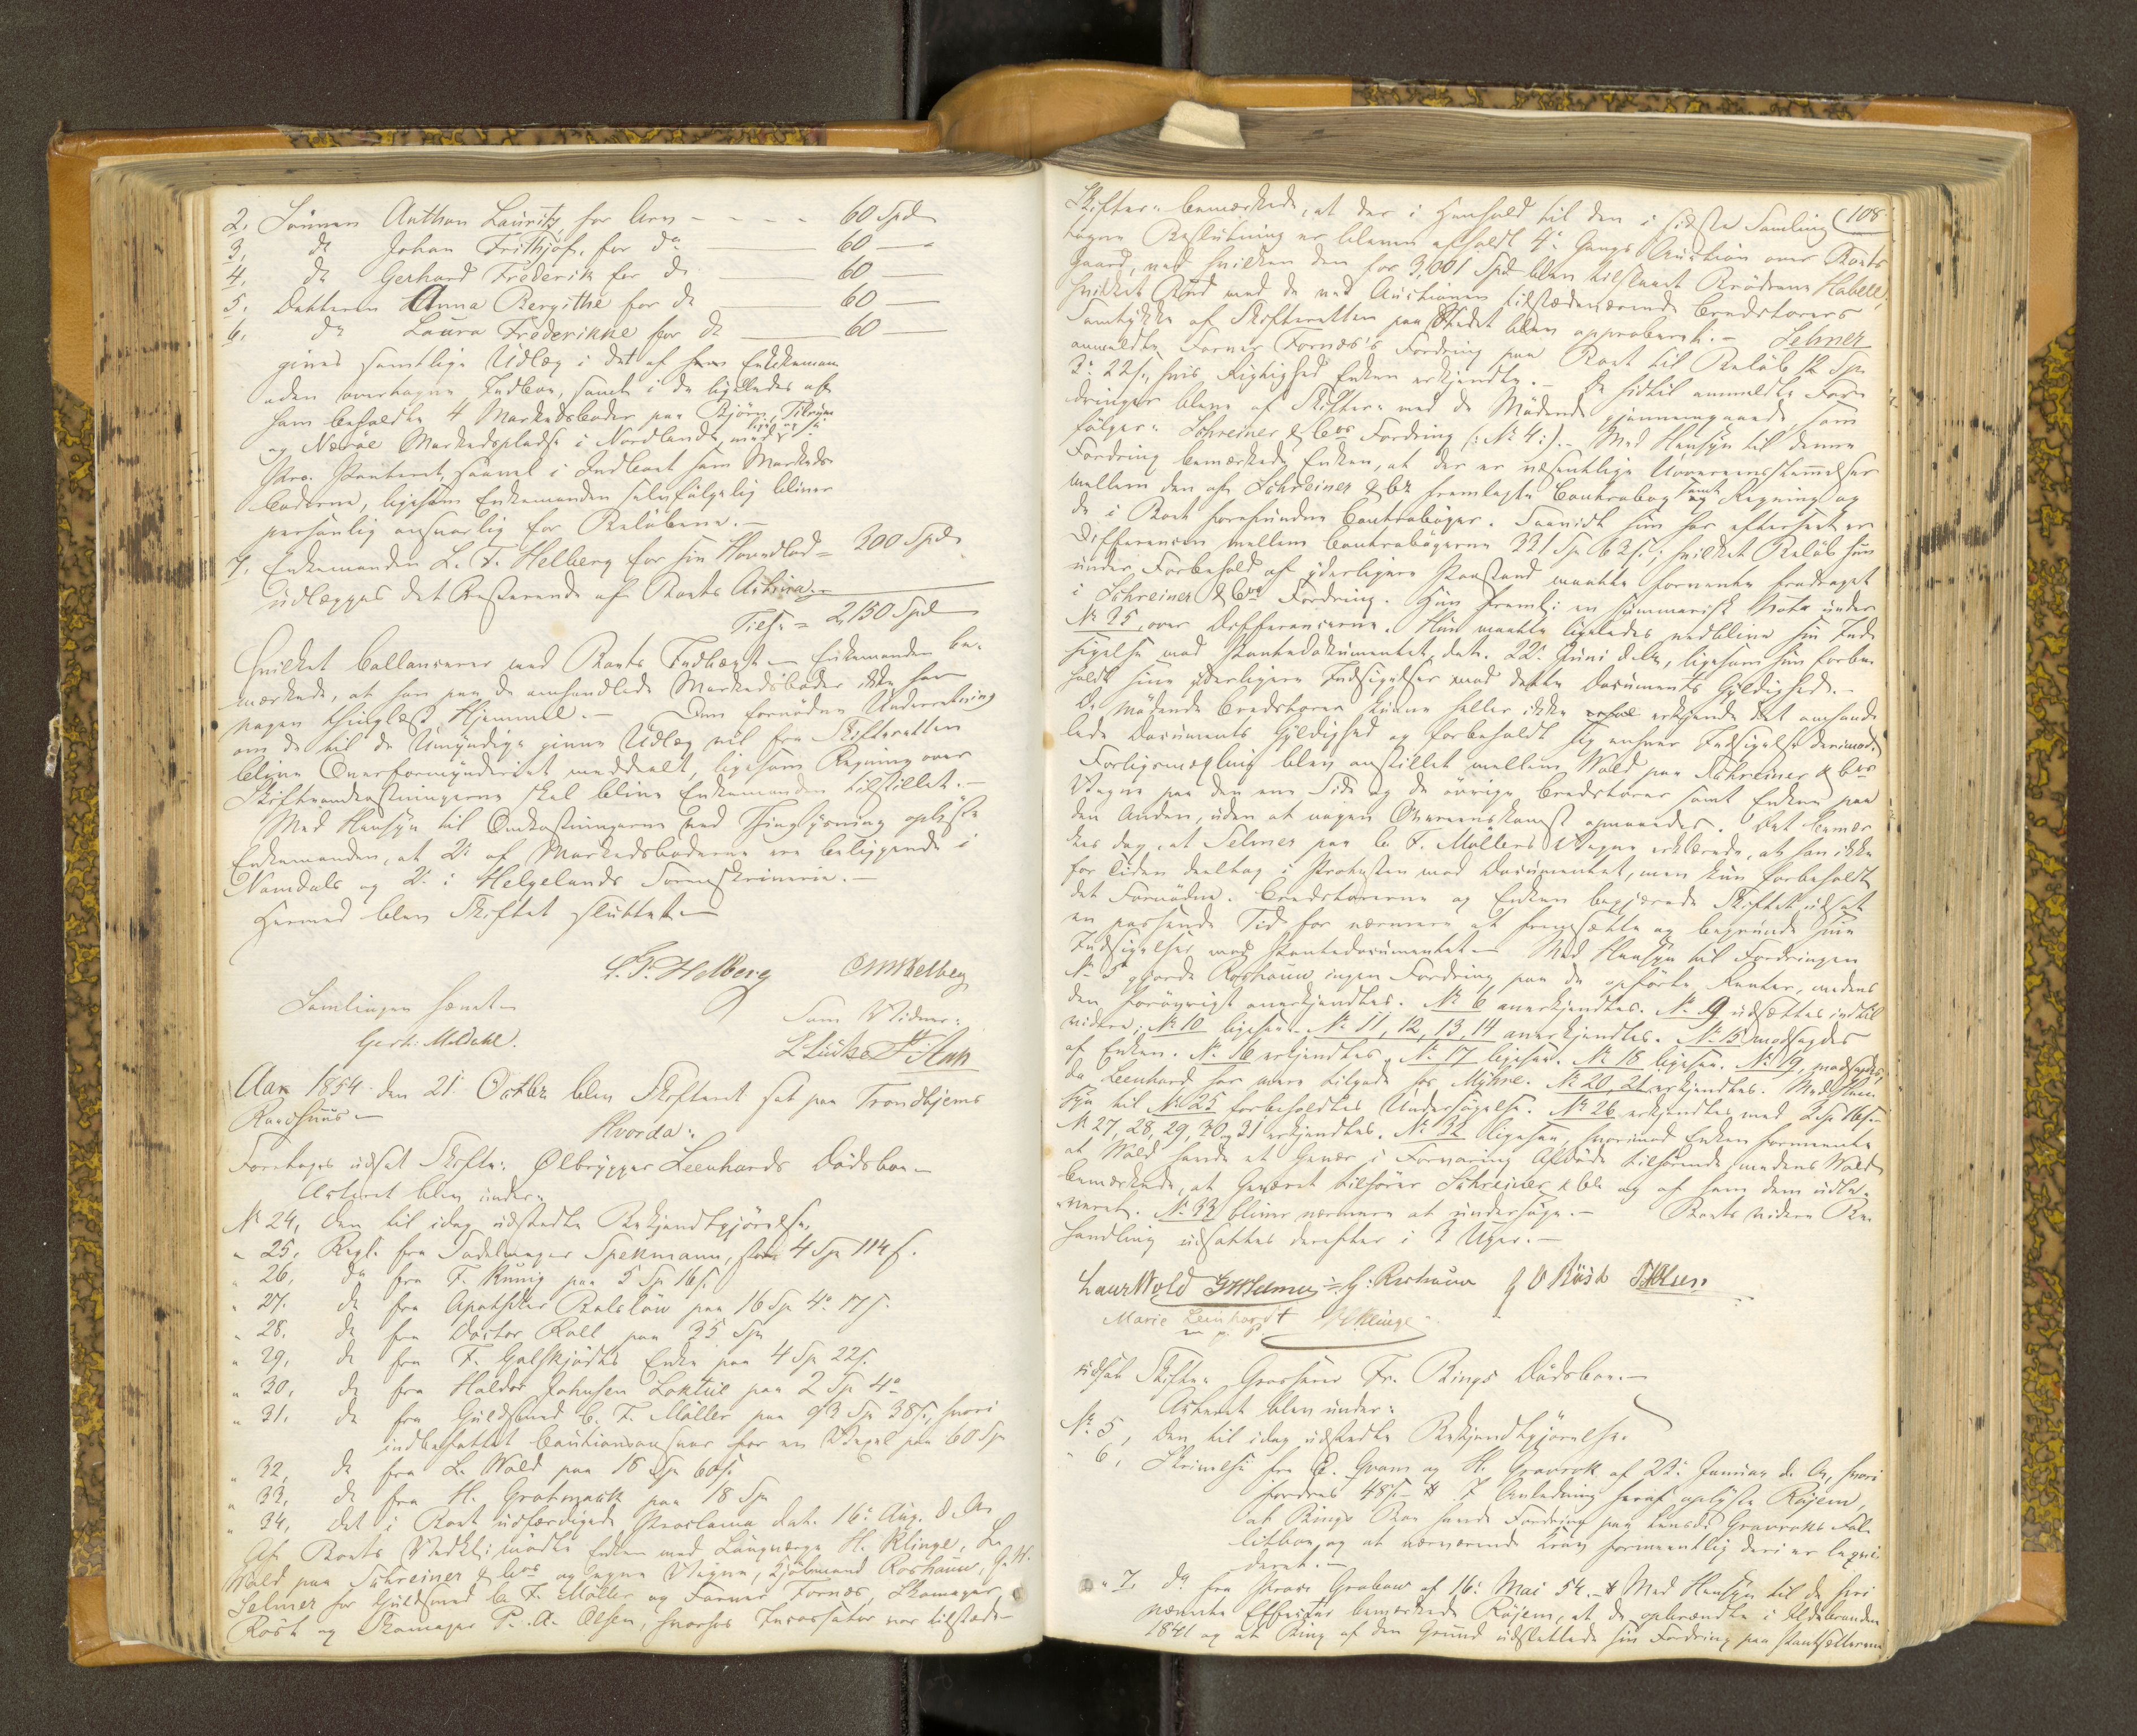 2, Sönnen Anthon Lauritz for Arv - - - - 60 Spd
3, do Johan Frithjof, for do 60 —
4, do Gerhard Frederik for do 60 —
5, Datteren Anna Bergithe for do 60 —
6, do Laura Frederikke for do 60 —
gives samtlige Udlæg i det af ham Enkemanden
uden overtagne Indboe, samt i de ligeledes af
ham beholdte 4 Markedsboder paa Björn, Tilrem
og Nærøe Markedspladse i Nordland, med
Prio. Panteret, saavel i Indboet som Markeds-
boderne, ligesom Enkemanden selvfölgelig bliver
personlig ansvarlig for Belöbene. —
7, Enkemanden L. F. Helberg for sin Hovedlod = 200 Spd
udlægges det Resterende af Boets Activa.
Tils. = 2,130 Spd
hvilket ballancerer med Boets Indtægt. — Enkemanden be-
mærkede, at han paa de omhandlede Markedsboder ikke har
nogen thinglæst Hjemmel. — Den fornödne Underretning
om de til de Umyndige givne Udlæg vil fra Skifteretten
blive Overformynderiet meddeelt, ligesom Regning over
Skifteomkostningerne skal blive Enkemanden tilstillet. —
Med Hensyn til Omkostningerne ved Thinglysning oplyste
Enkemanden, at 2 af Markedsboderne ere beliggende i
Namdals og 2 i Helgelands Sorenskriverie. —
Hermed blev Skiftet sluttet. —
L. F. Helberg
Samlingen hævet. —
Som Vidner:
Gert: Meldahl.
Aar 1854 den 21 Octbr blev Skifteret sat paa Trondhjems
Raadhuus —
Hvorda:
Foretoges udsat Skifte: Ølbrygger Leenhards Dödsboe. —
Acteret blev under:
No 24, den til idag udstedte Bekjendtgjörelse.
" 25, Regl. fra Sadelmager Spekmann, stor 4 Sp 114 s.
" 26, do fra F. Kunig paa 5 Sp 16 s.
" 27. do fra Apotheker Balslöw paa 16 Sp 4o 17 s.
" 28. do fra Doctor Roll paa 35 Sp
" 29, do fra F. Galskjödts Enke paa 4 Sp 22 s.
" 30, do fra Haldor Johnsen Loktue paa 2 Sp 4o
" 31. do fra Guldsmed C. F. Möller paa 93 Sp 38 s., hvori
indbefattet Cautionsansvar for en Vexel paa 60 Sp
" 32, do fra L. Wold paa 18 Sp 60 s.
" 33, do fra H. Grotmack paa 18 Sp
" 34, det i Boet udfærdigede Proclama dat. 16 Aug. d. A.
Af Boets Vedk. mödte Enken med Laugværge H. Klinge, L.
Wold paa Schreiner & Cos og egne Vegne, Kjöbmand Roshauw, G. H.
Selmer for Guldsmed C. F. Möller og Farver Fornæs, Skomager
Röst og Skomager P. A. Olsen, hvorhos Incassator var tilstede —
108
Skifter. bemærkede, at der i Henhold til den i sidste Samling
tagne Beslutning er bleven afholdt 4 Gangs Auction over Boets
Gaard, ved hvilken den for 3,001 Spd blev tilslaaet Brödrene Habell,
hvilket Bud med de ved Auctionen tilstedeværende Creditorers
Samtykke af Skifteretten paa Stedet blev approberet. — Selmer
anmeldte Farver Fornæs's Fordring paa Boet til Belöb 12 Sp
3o 22 s., hvis Rigtighed Enken erkjendte. — De hidtil anmeldte For-
dringer bleve af Skifter. med de Mödende gjennemgaaede, som
fölger: Schreiner & Cos Fordring (: No 4 :). — Med Hensyn til denne
Fordring bemærkede Enken, at der er væsentlige Uoverensstemmelser
mellem den af Schreiner & Co fremlagte Contrabog samt Regning og
de i Boet forefundne Contraböger. Saavidt hun har efterseet er
Differencen mellem Contrabögerne 331 Sp 62 s.; hvilket Belöb hun
under Forbehold af yderligere Paastand maatte forvente fradraget
i Schreiner & Cos Fordring. Hun freml. en summarisk Nota under
No 35, over Differencerne. Hun maatte ligeledes vedblive sin Ind-
sigelse mod Pantedokumentet, dat. 22 Juni d. A., ligesom hun forbe-
holdt sine yderligere Indsigelser mod dette Documents Gyldighed. —
De Mödende Creditorer kunne heller ikke erkjende det omhand-
lede Documents Gyldighed og forbeholdt sig enhver Indsigelse derimod.
Forligsmægling blev anstillet mellem Wold paa Schreiner & Cos
Vegne paa den ene Side og de övrige Creditorer samt Enken paa
den Anden, uden at nogen Overeenskomst opnaaedes. Det bemær-
kes dog, at Selmer paa C. F. Möllers Vegne erklærede, at han ikke
for Tiden deeltog i Protesten mod Documentet, men kun forbeholdt
det Fornödne. Creditorerne og Enken begjærede Skiftet udsat
en passende Tid for nærmere at fremsætte og begrunde sine
Indsigelser mod Pantedocumentet. — Med Hensyn til Fordringen
No 5 gjorde Roshauw ingen Fordring paa de opförte Renter, medens
den forövrigt anerkjendtes. No 6 anerkjendtes. No 9 udsættes indtil
videre; No 10 ligesaa. — No 11, 12, 13, 14 anerkjendtes. No 15 modsagdes
af Enken. No 16 erkjendtes. No 17 ligesaa. No 18 ligesaa. No 19, modsagdes,
da Leenhard har mere tilgode hos Myhre. No 20, 21 erkjendtes. Med Hen-
syn til No 25 forbeholdtes Undersögelse. No 26 erkjendtes med 2 Sp 16 s. —
No 27, 28, 29, 30 og 31 erkjendtes. No 32 ligesaa, hvorimod Enken formeente
at Wold havde et Gevær i Forvaring Afdöde tilhörende, medens Wold
bemærkede, at Geværet tilhörer Schreiner & Co og af ham dem udle-
veret. No 33 bliver nærmere at undersöge. — Boets videre Be-
handling udsattes derefter i 3 Uger. —
Laur Wold GHSelmer G: Roshauw
Marie Leinhardt HKlinge
m. p. p.
udsat Skifte: Grosserer Fr. Rings Dödsboe. —
Acteret blev under:
No 5, den til idag udstedte Bekjendtgjörelse.
" 6, Skrivelse fra E. Gram og H. Gravrok af 23 Januar d. A., hvori
fordres 48 s. — I Anledning heraf oplyste Röjem,
at Rings Boe havde Fordring paa Lensm. Gravroks Fal-
litboe, og at nærværende Krav formeentlig deri er liqvi-
deret. —
" 7, do fra Provst Grabow af 16 Mai 54. — Med Hensyn til de heri
nævnte Effecter bemærkede Röjem, at de opbrændte i Ildebranden
1841 og at Ring af den Grund udslettede sin Fordring paa Pantsætterne